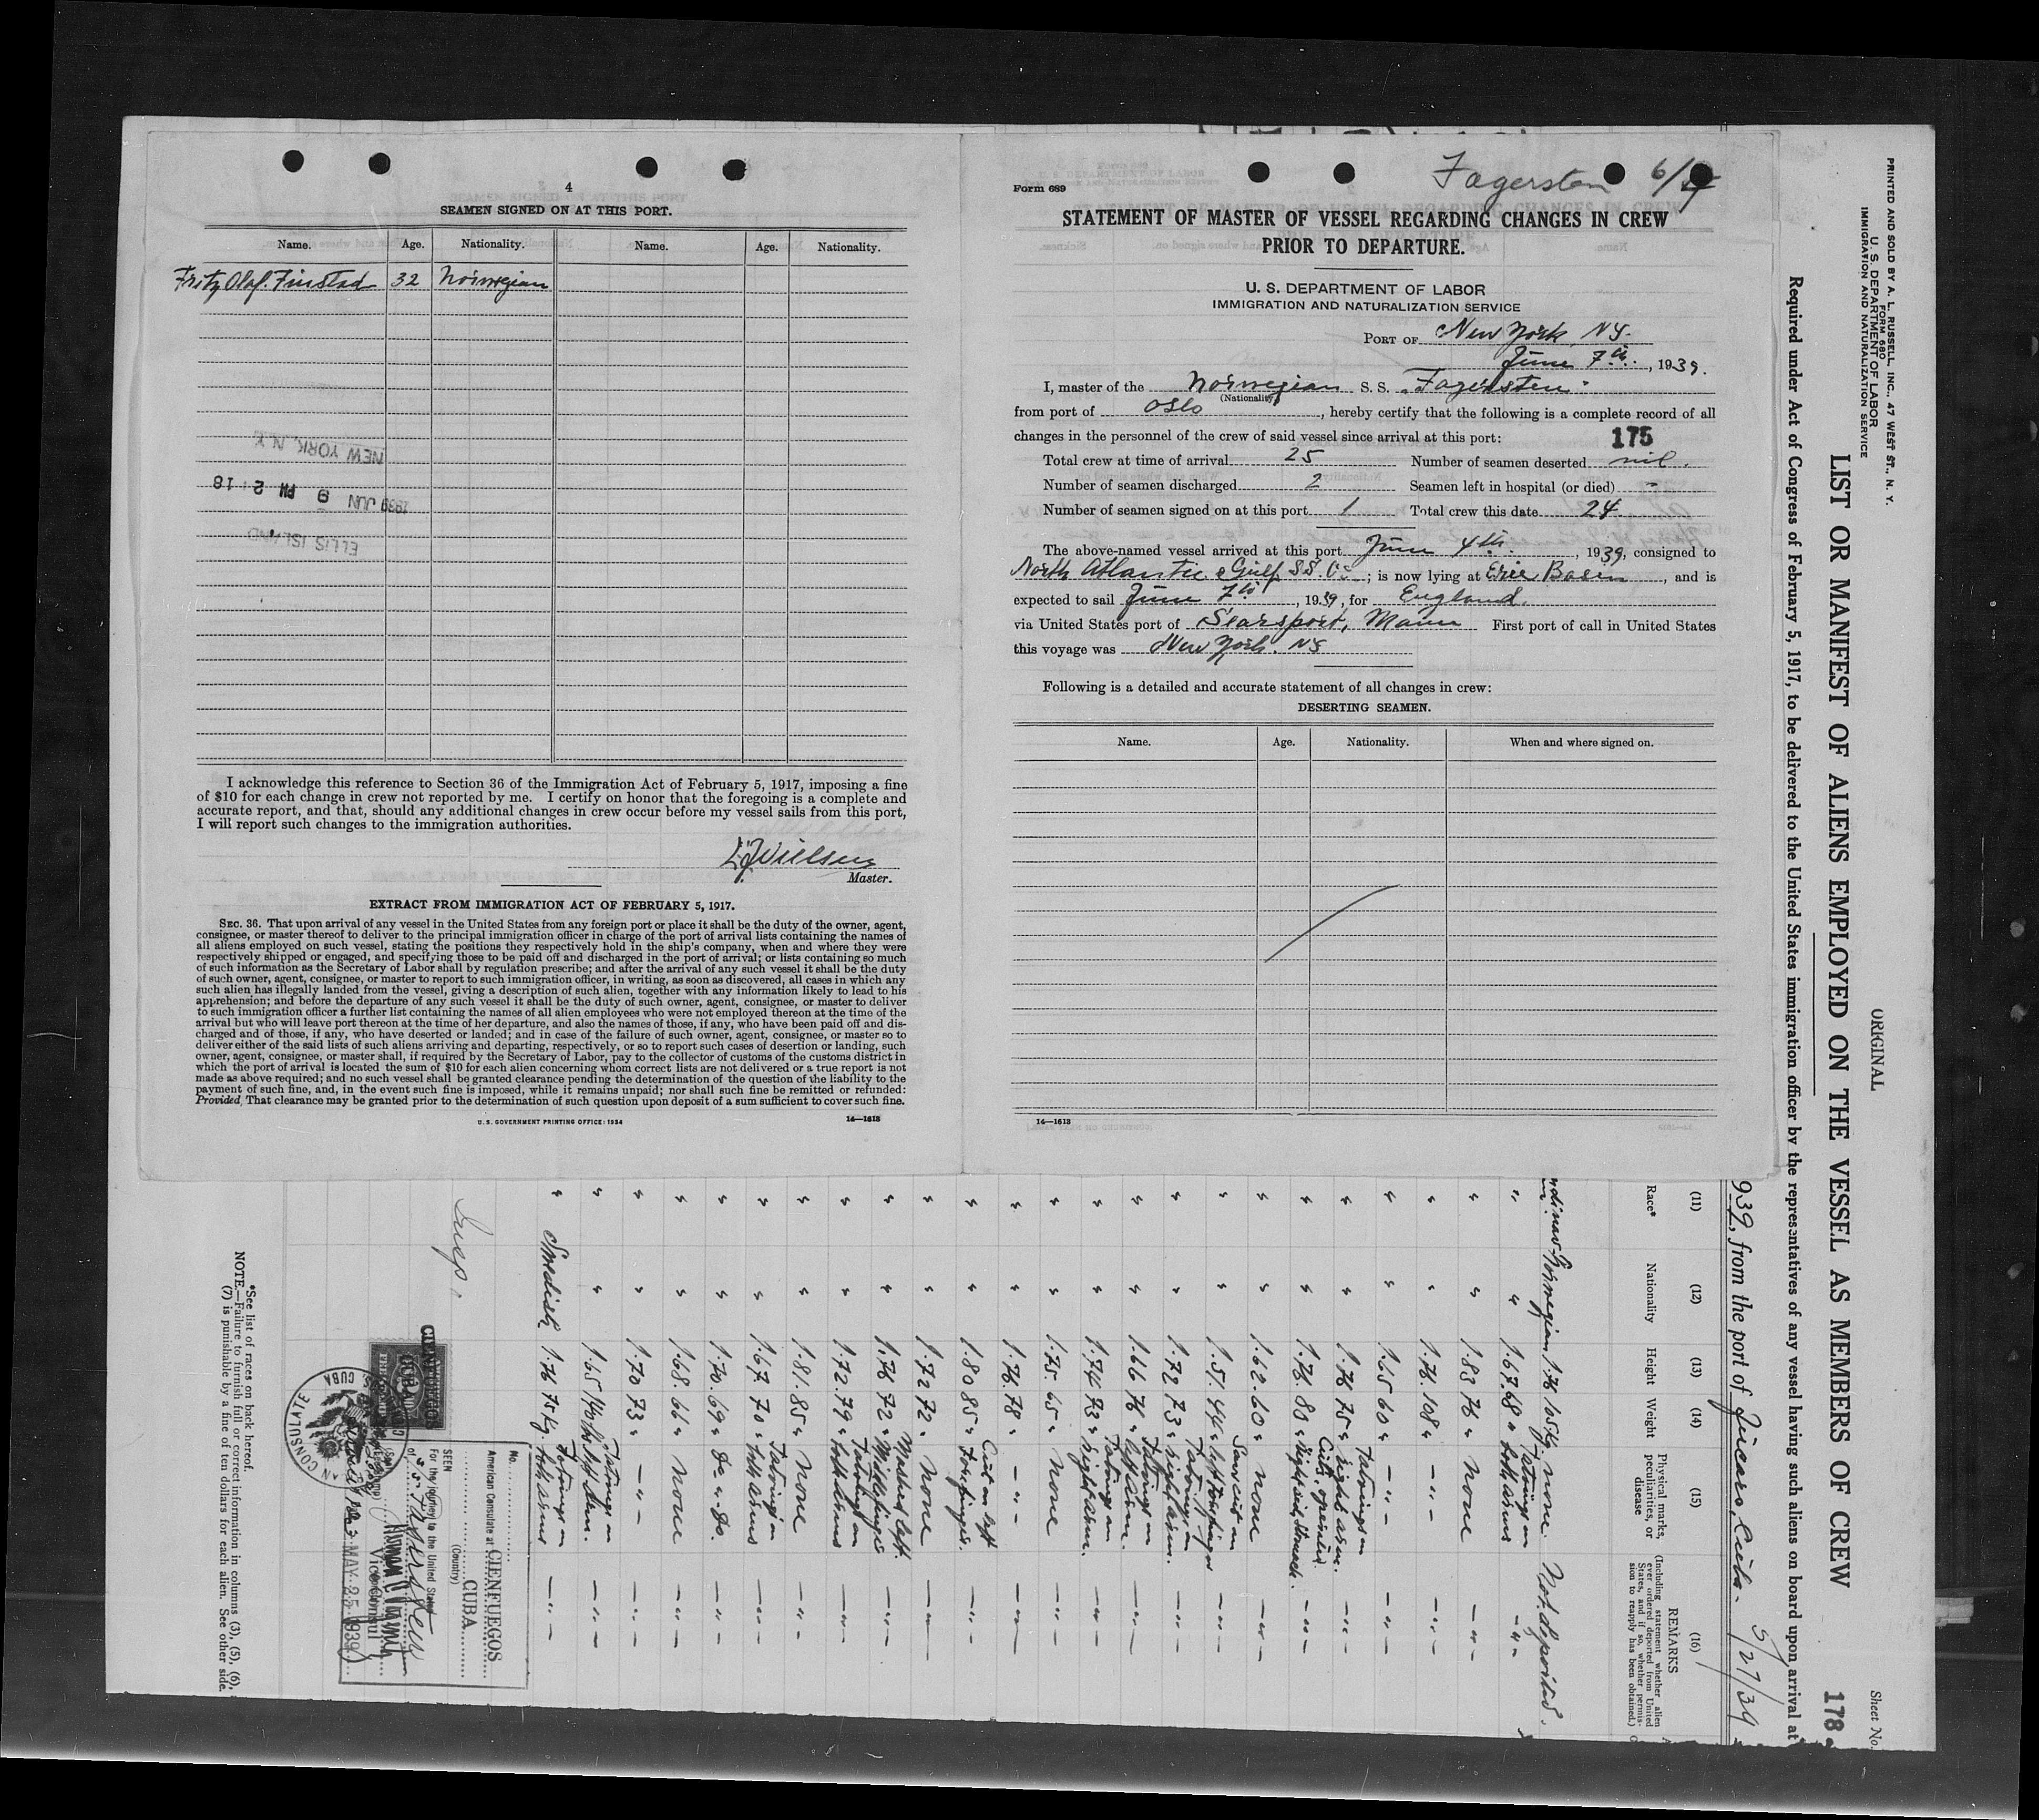 4
SEAMEN SIGNED ON AT THIS PORT.
Name. Age. Nationality. Name. Age. Nationality.
Fritz Olaf Finstad 32 Norwegian
NEW YORK, N.Y.
1939 JUN 9 PM 2:18
ELLIS ISLAND
I acknowledge this reference to Section 36 of the Immigration Act of February 5, 1917, imposing a fine
of $10 for each change in crew not reported by me. I certify on honor that the foregoing is a complete and
accurate report, and that, should any additional changes in crew occur before my vessel sails from this port,
I will report such changes to the immigration authorities.
Nielsen
Master.
EXTRACT FROM IMMIGRATION ACT OF FEBRUARY 5, 1917.
SEC. 36. That upon arrival of any vessel in the United States from any foreign port or place it shall be the duty of the owner, agent,
consignee, or master thereof to deliver to the principal immigration officer in charge of the port of arrival lists containing the names of
all aliens employed on such vessel, stating the positions they respectively hold in the ship's company, when and where they were
respectively shipped or engaged, and specifying those to be paid off and discharged in the port of arrival; or lists containing so much
of such information as the Secretary of Labor shall by regulation prescribe; and after the arrival of any such vessel it shall be the duty
of such owner, agent, consignee, or master to report to such immigration officer, in writing, as soon as discovered, all cases in which any
such alien has illegally landed from the vessel, giving a description of such alien, together with any information likely to lead to his
apprehension; and before the departure of any such vessel it shall be the duty of such owner, agent, consignee, or master to deliver
to such immigration officer a further list containing the names of all alien employees who were not employed thereon at the time of the
arrival but who will leave port thereon at the time of her departure, and also the names of those, if any, who have been paid off and dis-
charged and of those, if any, who have deserted or landed; and in case of the failure of such owner, agent, consignee, or master so to
deliver either of the said lists of such aliens arriving and departing, respectively, or so to report such cases of desertion or landing, such
owner, agent, consignee, or master shall, if required by the Secretary of Labor, pay to the collector of customs of the customs district in
which the port of arrival is located the sum of $10 for each alien concerning whom correct lists are not delivered or a true report is not
made as above required; and no such vessel shall be granted clearance pending the determination of the question of the liability to the
payment of such fine, and, in the event such fine is imposed, while it remains unpaid; nor shall such fine be remitted or refunded:
Provided, That clearance may be granted prior to the determination of such question upon deposit of a sum sufficient to cover such fine.
U.S. GOVERNMENT PRINTING OFFICE: 1934 14—1613
Fagersten 6/7
Form 689
STATEMENT OF MASTER OF VESSEL REGARDING CHANGES IN CREW
PRIOR TO DEPARTURE.
U. S. DEPARTMENT OF LABOR
IMMIGRATION AND NATURALIZATION SERVICE
PORT OF New York, NY.
June 7th., 1939.
I, master of the Norwegian S. S. "Fagersten"
(Nationality)
from port of Oslo, hereby certify that the following is a complete record of all
changes in the personnel of the crew of said vessel since arrival at this port:
175
Total crew at time of arrival 25 Number of seamen deserted nil.
Number of seamen discharged 2 Seamen left in hospital (or died) -
Number of seamen signed on at this port 1 Total crew this date 24
The above-named vessel arrived at this port June 4th., 1939, consigned to
North Atlantic & Gulf SS. Co; is now lying at Erie Basin, and is
expected to sail June 7th, 1939, for England.
via United States port of Searsport, Main First port of call in United States
this voyage was New York. NY
Following is a detailed and accurate statement of all changes in crew:
DESERTING SEAMEN.
Name. Age. Nationality. When and where signed on.
14—1613
PRINTED AND SOLD BY A. L. RUSSELL, INC., 47 WEST ST., N. Y.
FORM 680
U. S. DEPARTMENT OF LABOR
IMMIGRATION AND NATURALIZATION SERVICE
ORIGINAL
Sheet No.
LIST OR MANIFEST OF ALIENS EMPLOYED ON THE VESSEL AS MEMBERS OF CREW
178
Required under Act of Congress of February 5, 1917, to be delivered to the United States immigration officer by the representatives of any vessel having such aliens on board upon arrival at
939, from the port of Jucaro, Cuba. 5/27/39
(11) (12) (13) (14) (15) (16)
Race* Nationality Height Weight Physical marks, peculiarities, or disease REMARKS
(Including statement whether alien ever ordered deported from United States, and if so, whether permission to reapply has been obtained.)
Norwegian 1.76 105 kg none. Not deported.
" " 1.67 68 " Tatooings on both arms -"-
" " 1.83 76 " none -"-
" " 1.76 108 " -"- -"-
" " 1.65 60 " -"- -"-
" " 1.76 75 " Tatooings on right arm. -"-
" " 1.76 80 " -"-
" " 1.62 60 " none -"-
" " 1.51 44 " -"-
" " 1.72 73 " Tatooings on right arm. -"-
" " 1.66 76 " Tatooings on left arm. -"-
" " 1.74 73 " Tatooings on right arm. -"-
" " 1.75 65 " none -"-
" " 1.76 78 " -"- -"-
" " 1.80 85 " Cut on left forefinger. -"-
" " 1.72 72 " none -"-
" " 1.76 72 " Mashed left Middlefinger -"-
" " 1.72 79 " Tatooings on both arms -"-
" " 1.81 85 " none -"-
" " 1.67 70 " Tatooings on both arms -"-
" " 1.70 69 " do - do. -"-
" " 1.68 66 " none -"-
" " 1.70 73 " -"- -"-
" " 1.65 -"-
" Swedish 1.76 75 kg Tatooings on both arms -"-
No.
American Consulate at CIENFUEGOS
CUBA
(Country)
SEEN
For the journey to the United States
of S.S. Fagersten
Vice Consul
MAY 25 1939
CIENFUEGOS
AN CONSULATE
CUBA
*See list of races on back hereof.
NOTE.—Failure to furnish full or correct information in columns (3), (5), (6),
(7) is punishable by a fine of ten dollars for each alien. See other side.